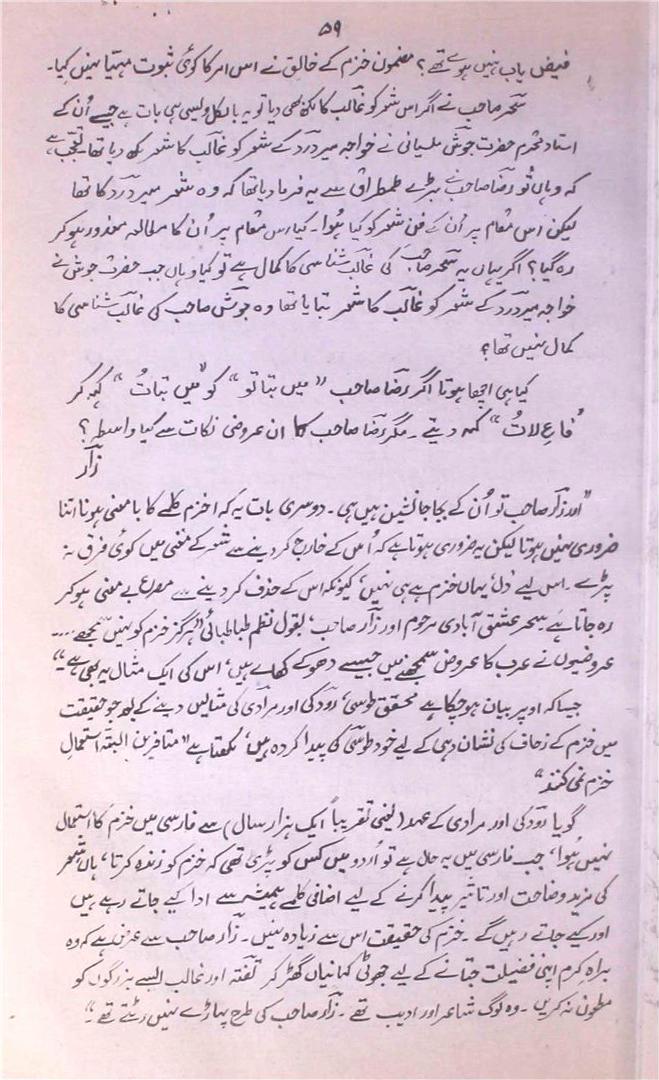 ۵۹
فیض یاب نہیں ہوے تھے؟ مضمون خزم کے خالق نے اس امر کا کوئی ثبوت مہتیا نہیں کیا۔
سحر صاحب نے اگر اس شعر کو غالب کا لکھ بھی دیا تو یہ بالکل ویسی ہی بات ہے جیسے اُن کے
استادِ محترم حضرت جوش ملسیانی نے خواجہ میر درد کے شعر کو غالب کا شعر لکھ دیا تھا۔ تعجب ہے
کہ وہاں تو رضا صاحب نے بڑے طمطراق سے یہ فرما دیا تھا کہ وہ شعر میر درد کا تھا
لیکن اس مقام پر اُن کے فنِ شعر کو کیا ہُوا۔ کیا اس مقام پر اُن کا مطالعہ معذور ہو کر
رہ گیا؟ اگر یہاں یہ سحر صاحب کی غالب شناسی کا کمال ہے تو کیا وہاں جب حضرت جوش نے
خواجہ میر درد کے شعر کو غالب کا شعر بتایا تھا وہ جوش صاحب کی غالب شناسی کا
کمال نہیں تھا؟
کیا ہی اچھا ہوتا اگر رضا صاحب "میں بتا تو" کو "میں بتاتُ" کہہ کر
"فاعِ لاتُ" کہہ دیتے۔ مگر رضا صاحب کا ان عروضی نکات سے کیا واسطہ؟
زار
"اور زار صاحب تو اُن کے بجا جانشین ہیں ہی۔ دوسری بات یہ کہ اخزم کلمے کا با معنی ہونا اتنا
ضروری نہیں ہوتا لیکن یہ ضروری ہوتا ہے کہ اُس کے خارج کر دینے سے شعر کے معنی میں کوئی فرق نہ
پڑے۔ اس لیے 'دل' یہاں خزم ہے ہی نہیں' کیونکہ اس کے حذف کر دینے سے مصرع بے معنی ہو کر
رہ جاتا ہے سحر عشق آبادی مرحوم اور زار صاحب، بقول نظم طباطبائی "ہرگز خزم کو نہیں سمجھے ....
عروضیوں نے عرب کا عروض سمجھنے میں جیسے دھوکے کھاے ہیں' اس کی ایک مثال یہ بھی ہے۔"
جیسا کہ اوپر بیان ہو چکا ہے محقق طوسی' رودکی اور مرادی کی مثالیں دینے کے بعد جو حقیقت
میں خزم کے زحاف کی نشان دہی کے لیے خود طوسی کی پیدا کردہ ہیں' لکھتا ہے "متأخرین البتہ استعمالِ
خزم نمی کنند"
گویا رودکی اور مرادی کے عہد (یعنی تقریباً ایک ہزار سال) سے فارسی میں خزم کا استعمال
نہیں ہُوا' جب فارسی میں یہ حال ہے تو اُردو میں کس کو پڑی تھی کہ خزم کو زندہ کرتا' ہاں شعر
کی مزید وضاحت اور تاثیر پیدا کرنے کے لیے اضافی کلمے ہمیشہ سے ادا کیے جاتے رہے ہیں
اور کیے جاتے رہیں گے۔ خزم کی حقیقت اس سے زیادہ نہیں۔ زار صاحب سے عرض ہے کہ وہ
براہِ کرم اپنی فضیلت جتانے کے لیے جھوٹی کہانیاں گھڑ کر تفتہ اور غالب ایسے بزرگوں کو
مطعون نہ کریں۔ وہ لوگ شاعر اور ادیب تھے۔ زار صاحب کی طرح پہاڑے نہیں رٹتے تھے۔"